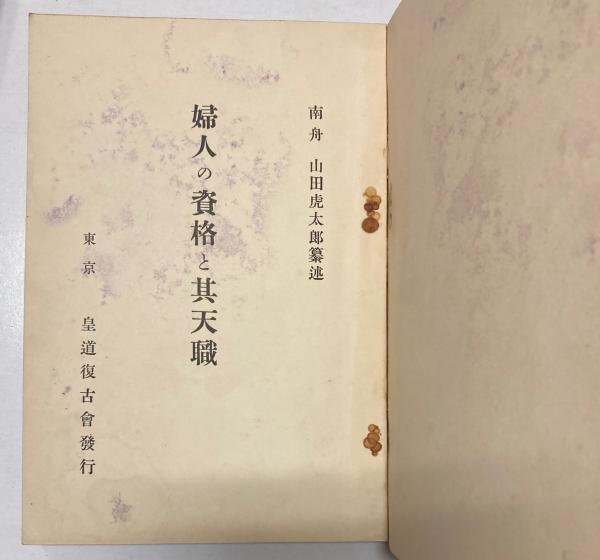 南舟 山田虎太郎纂述
婦人の資格と其天職
東京 皇道復古會發行